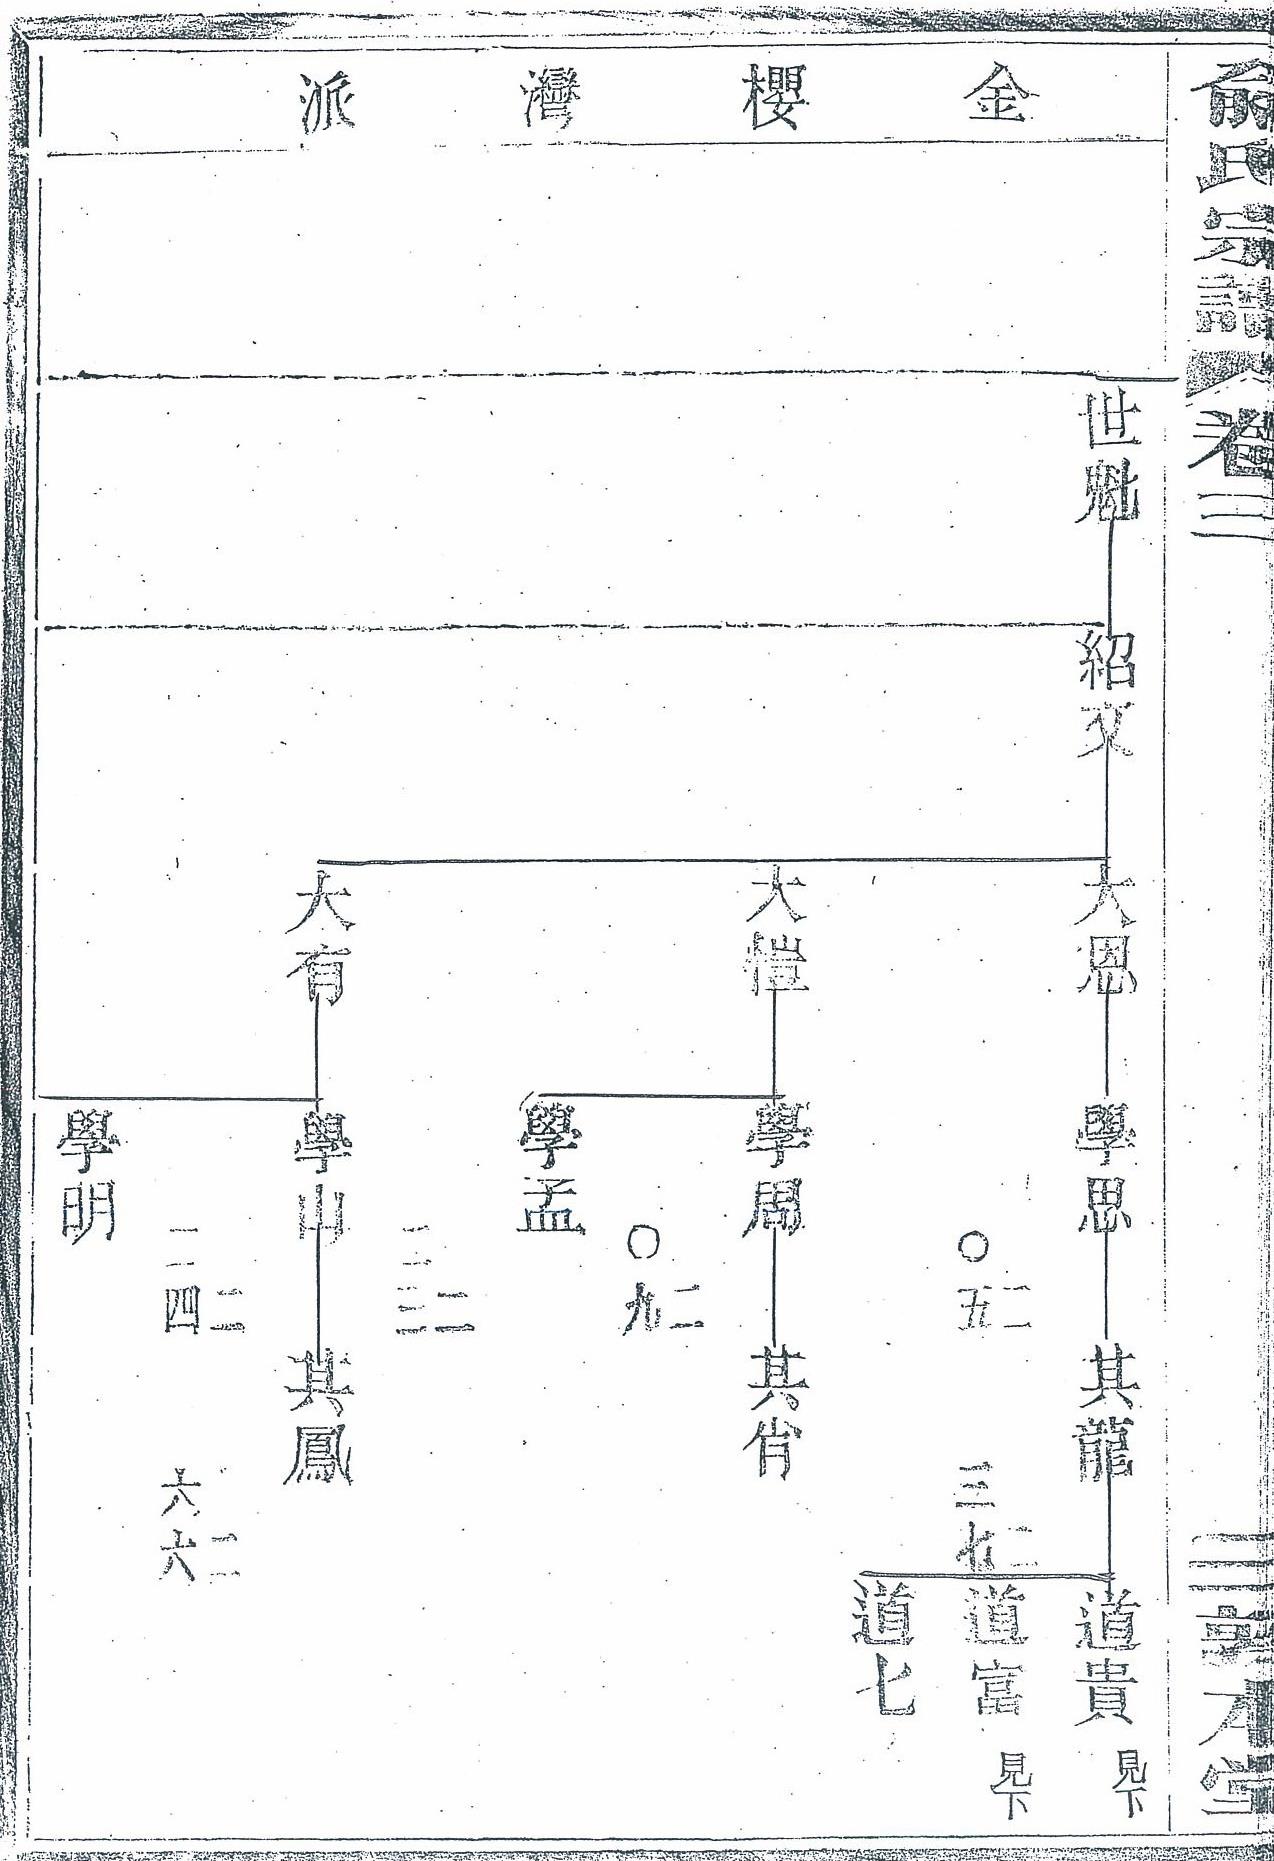 俞氏宗譜
卷三
本堂
金櫻灣派
世魁
紹文
大恩
大愷
大有
學思
學周
學孟
學山
學明
二五〇
二九〇
二四二
其龍
其肖
其鳳
二七三
二六六
道貴
見下
道富
見下
道七